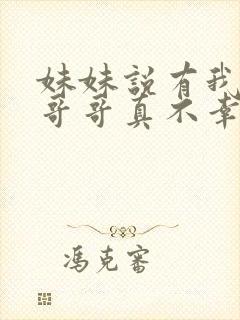 妹妹説有我
哥哥真不幸
馮克審